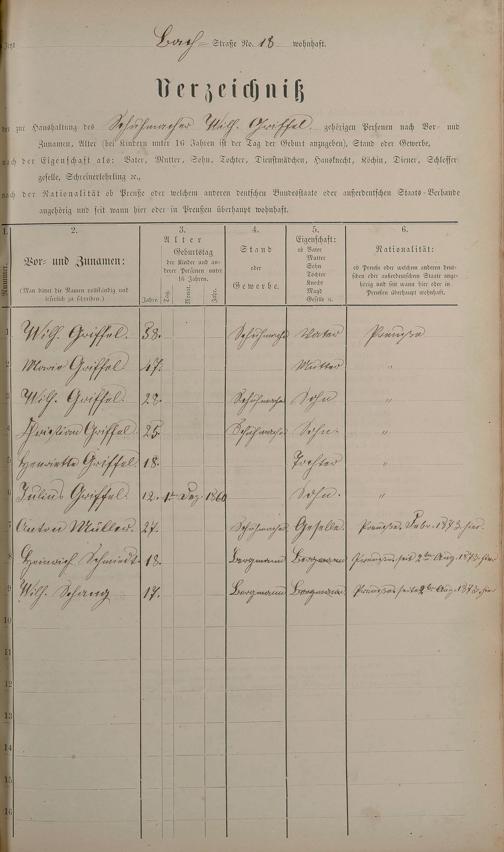 Bach- Straße No. 18 wohnhaft.
Verzeichniß
der zur Haushaltung des Schuhmacher Wilh. Griffel gehörigen Personen nach Vor- und
Zunamen, Alter (bei Kindern unter 16 Jahren ist der Tag der Geburt anzugeben), Stand oder Gewerbe,
nach der Eigenschaft als: Vater, Mutter, Sohn, Tochter, Dienstmädchen, Hausknecht, Köchin, Diener, Schlosser
geselle, Schreinerlehrling &c.,
nach der Nationalität ob Preuße oder welchem anderen deutschen Bundesstaate oder außerdeutschen Staats-Verbande
angehörig und seit wann hier oder in Preußen überhaupt wohnhaft.
1. 2. 3. 4. 5. 6.
Nummer.
Vor- und Zunamen:
(Man bittet die Namen vollständig und
leserlich zu schreiben.)
Alter
Geburtstag
der Kinder und an-
derer Personen unter
16 Jahren.
Jahre. Tag. Monat. Jahr.
Stand
oder
Gewerbe.
Eigenschaft:
ob Vater
Mutter
Sohn
Tochter
Knecht
Magd
Geselle u.
Nationalität:
ob Preuße oder welchem anderen deut-
schen oder außerdeutschen Staate ange-
hörig und seit wann hier oder in
Preußen überhaupt wohnhaft.
1 Wilh. Griffel. 58. Schuhmacher Vater Preuße
2 Marie Griffel 47. Mutter "
3 Wilh. Griffel. 28. Schuhmacher Sohn "
4 Christian Griffel. 25. Schuhmacher Sohn. "
5 Henriette Griffel. 18. Tochter "
6 Julius Griffel. 12. 1t Dez. 1860 Sohn. "
7 Anton Müller. 27. Schuhmacher Geselle. Preuße, Febr. 1873 hier
8 Heinrich Schmidt. 18. Bergmann Bergmann Preuße seit 2ten Aug. 1873 hier
9 Wilh. Schang 17. Bergmann Bergmann Preuße seit 2ten Aug. 1873 hier
10
11
12
13
14
15
16